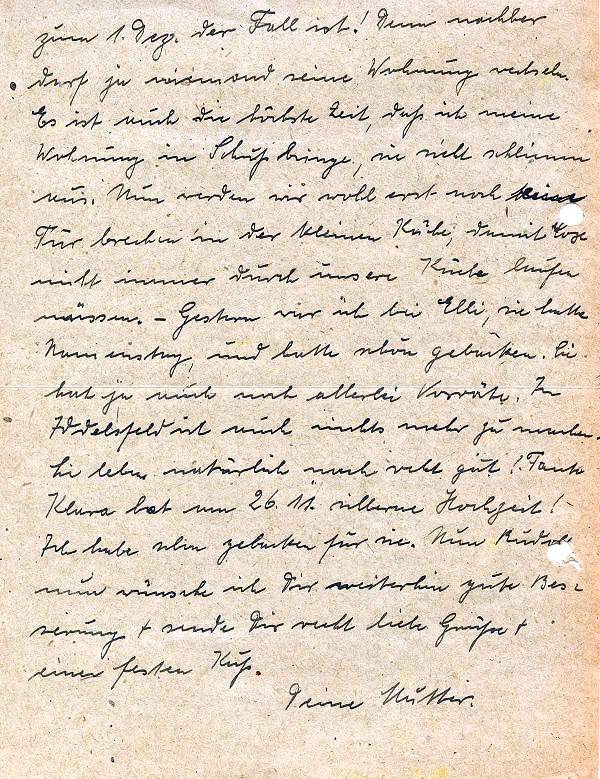 zum 1. Dez. der Fall ist! Denn nachher
darf ja niemand seine Wohnung wechseln.
Es ist auch die höchste Zeit, daß ich meine
Wohnung in Schuß bringe, sie sieht schlimm
aus. Nun werden wir wohl erst noch eine
Tür brechen in der kleinen Küche, damit
nicht immer durch unsere Küche laufen
müssen. – Gestern war ich bei Elli, sie hatte
Namenstag, und hatte schön gebacken. Sie
hat ja auch noch allerlei Vorräte. In
Iddelsfeld ist auch nichts mehr zu machen.
Sie leben natürlich noch recht gut! Tante
Klara hat am 26.11. silberne Hochzeit!
Ich habe schon gebacken für sie. Nun Rudolf
nun wünsche ich Dir weiterhin gute Bes-
serung + sende Dir recht liebe Grüße +
einen festen Kuß.
Deine Mutter.